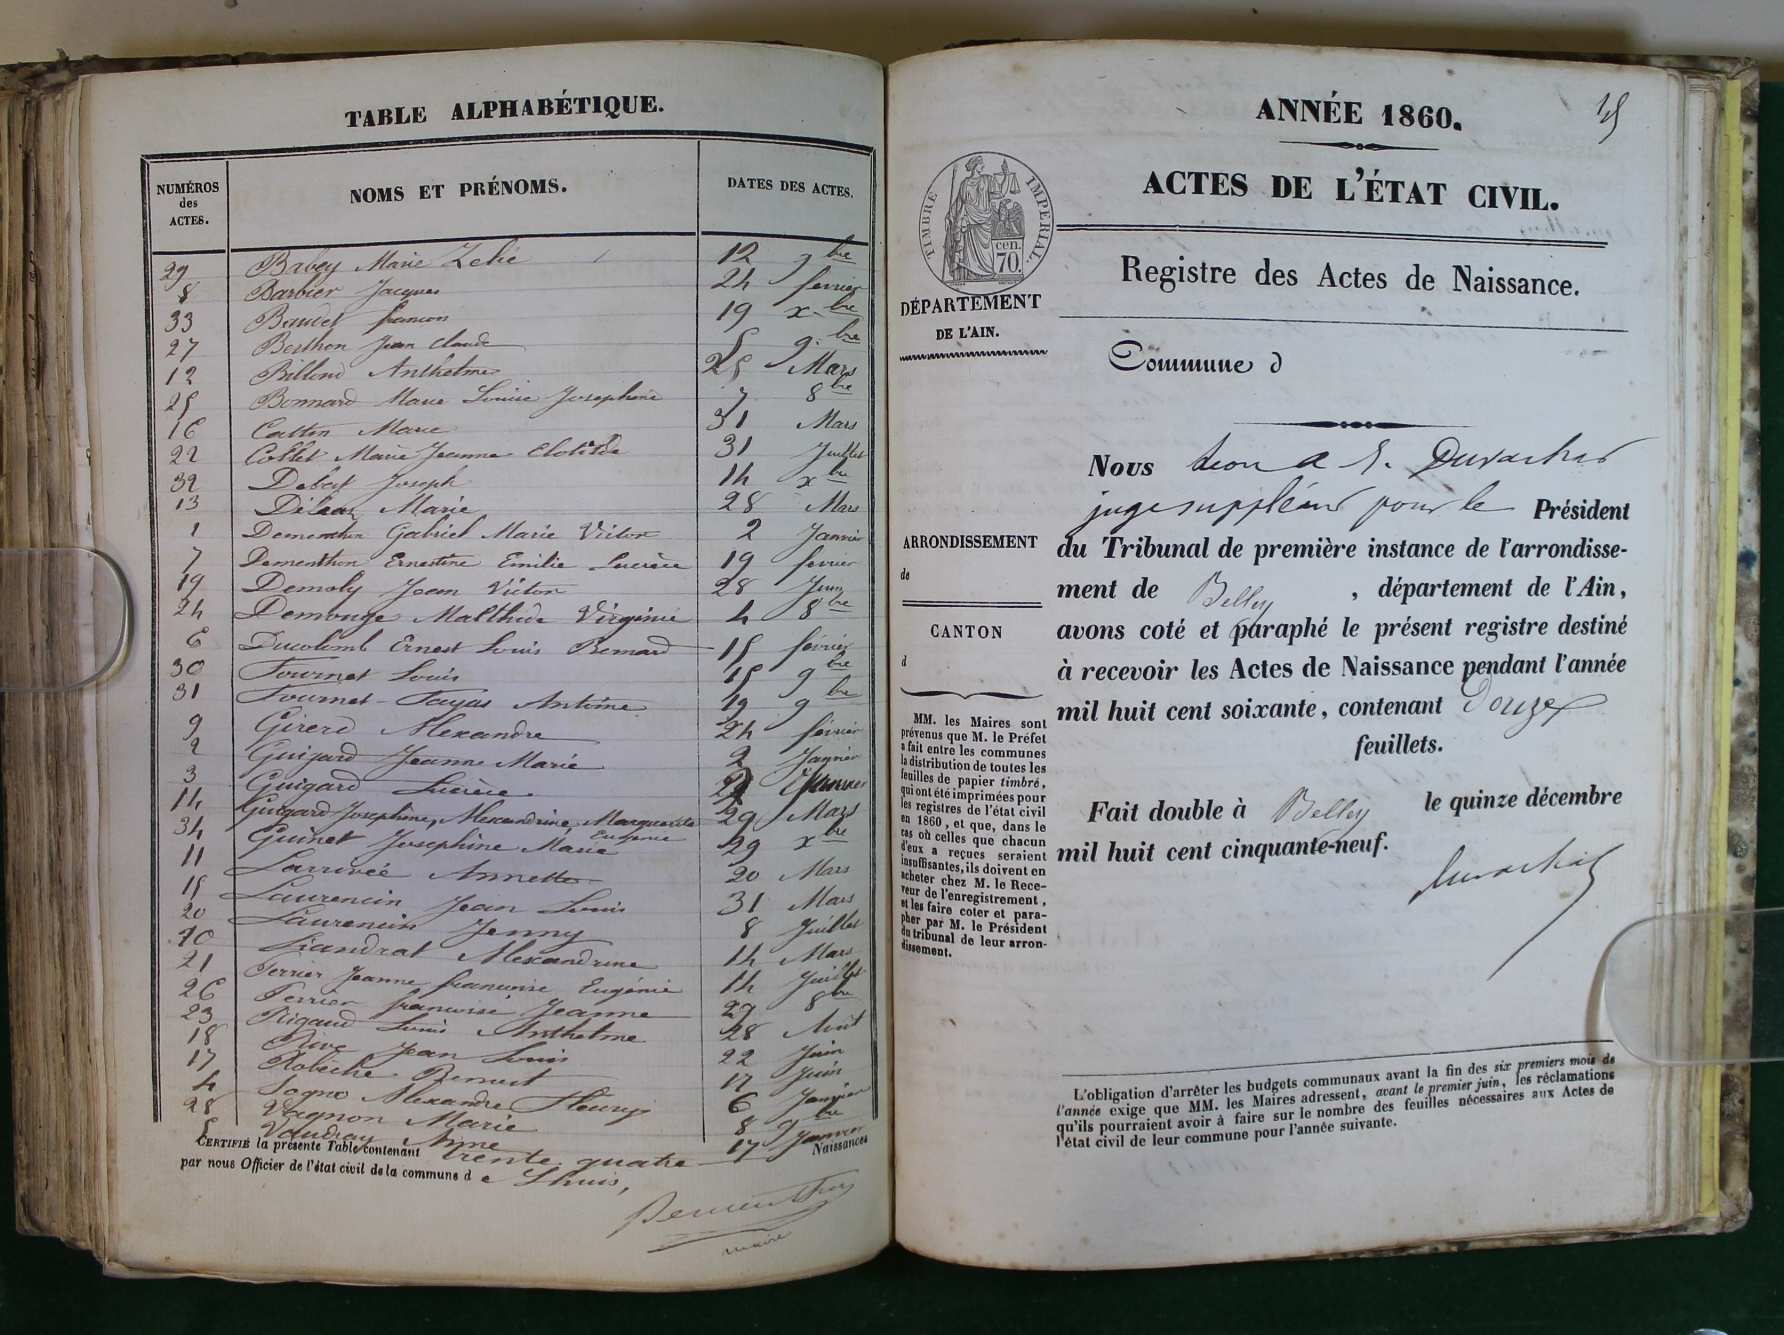 TABLE ALPHABÉTIQUE.
NUMÉROS des ACTES. NOMS ET PRÉNOMS. DATES DES ACTES.
29 Babey Marie Zelie 12 9bre
8 Barbier Jacques 24 février
33 Baudet 19 xbre
27 Berthon Jean Claude 5 9bre
12 Billond Anthelme 25 Mars
25 Bonnard Marie Louise Josephine 7 8bre
16 Cattin Marie 31 Mars
22 Collet Marie Jeanne Clotilde 31 Juillet
32 Debert Joseph 14 xbre
13 Marie 28 Mars
1 Dementhon Gabriel Marie Victor 2 Janvier
7 Dementhon Ernestine Emilie Lucrèce 19 fevrier
19 Demoly Jean Victor 28 Juin
24 Demouge Malthide Virginie 4 8bre
6 Ducolomb Ernest Louis Bernard 15 février
30 Fournet Louis 15 9bre
31 Fournet-Fayas Antoine 19 9bre
9 Girerd Alexandre 24 février
2 Guigard Jeanne Marie 2 Janvier
3 Guigard Lucrèce
14 Guigard Josephine, Alexandrine, Marguerite 29 Mars
34 Guinet Josephine Marie Eugenie 29 xbre
11 Larrivée Annette 20 Mars
15 Laurencin Jean Louis 31 Mars
20 Laurencin Jenny 8 Juillet
10 Liandrat Alexandrine 14 Mars
21 Perrier Jeanne francoise Eugénie 14 Juillet
26 Perrier francoise Jeanne 29 8bre
23 Rigaud Louis Anthelme 28 Août
18 Rive Jean Louis 22 Juin
17 Robèche Benoit 17 Juin
4 Sogno Alexandre Fleury 6 Janvier
28 Vagnon Marie 8 9bre
5 Vaudray Anne 17 Janvier
CERTIFIÉ la présente Table contenant trente quatre Naissances
par nous Officier de l'état civil de la commune de Lhuis,
Dementhon
maire
ANNÉE 1860.
ACTES DE L'ÉTAT CIVIL.
TIMBRE IMPÉRIAL.
cen.
70.
Registre des Actes de Naissance.
DÉPARTEMENT
DE L'AIN.
Commune d
Nous
juge suppléant pour le Président
ARRONDISSEMENT
de
du Tribunal de première instance de l'arrondisse-
ment de Belley, département de l'Ain,
CANTON
d
avons coté et paraphé le présent registre destiné
à recevoir les Actes de Naissance pendant l'année
mil huit cent soixante, contenant Douze
feuillets.
MM. les Maires sont
prévenus que M. le Préfet
a fait entre les communes
la distribution de toutes les
feuilles de papier timbré,
qui ont été imprimées pour
les registres de l'état civil
en 1860, et que, dans le
cas où celles que chacun
d'eux a reçues seraient
insuffisantes, ils doivent en
acheter chez M. le Rece-
veur de l'enregistrement,
et les faire coter et para-
pher par M. le Président
du tribunal de leur arron-
dissement.
Fait double à Belley le quinze décembre
mil huit cent cinquante-neuf.
L'obligation d'arrêter les budgets communaux avant la fin des six premiers mois de
l'année exige que MM. les Maires adressent, avant le premier juin, les réclamations
qu'ils pourraient avoir à faire sur le nombre des feuilles nécessaires aux Actes de
l'état civil de leur commune pour l'année suivante.